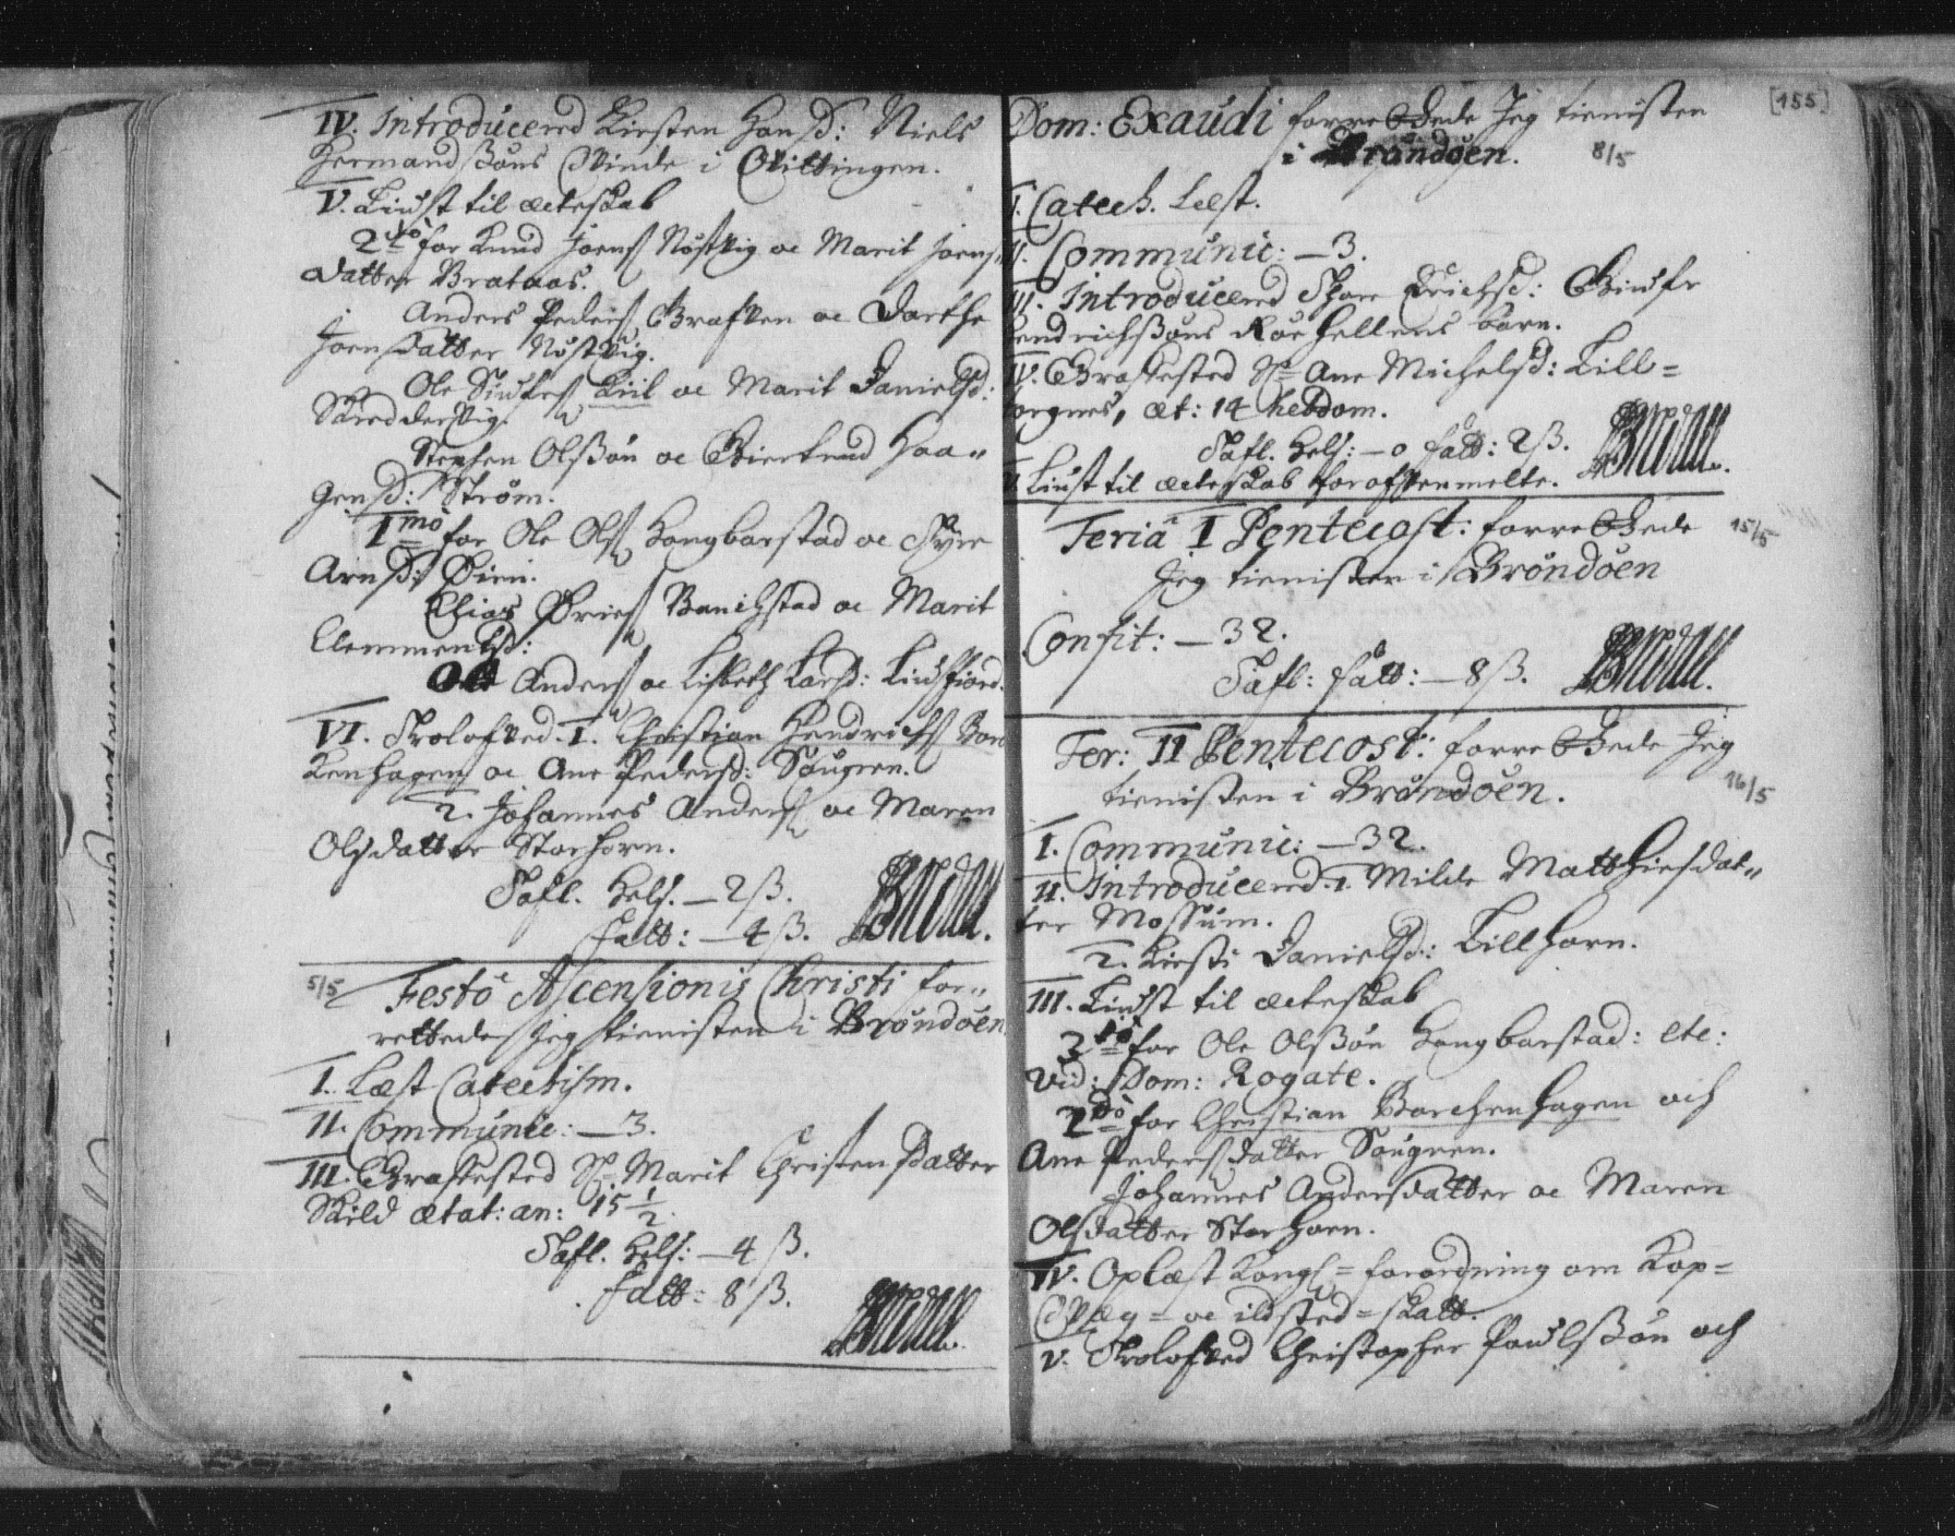 IV. Introducered Kirsten Hansd: Niels
Hermandssøns Qvinde i
V. Liust til ecteskab
2do for Knud Joens Nøstvig oc Marit Joens„
datter Brataas.
Anders Peders Grafven oc Dorthe
Joensdatter Nøstvig.
Ole Siufers Kiil oc Marit Danielsd:
Skreddervig.
Stephen Olssøn oc Giertrud Haa„
gensd: Strøm.
1mo for Ole Ols Hongbarstad oc Syre
Arnsd: Øien.
Elias Banchstad oc Marit
Clemmentsd:
Ole Anders oc Lisbeth Larsd: Liusfiord.
VI. Trolofved. 1. Christian Hendrichs Bor
kenhagen oc Ane Pedersd: Sougnen.
2. Johannes Anders oc Maren
Olsdatter Storhorn.
Tafl. Hels. – 2 ß.
Fatt: – 4 ß.
5/5
Festo Ascensionis Christi for„
rettede Jeg tienisten i Brøndøen
I. Læst Catechism.
II. Communic: – 3.
III. Grafested Sl. Marit Christensdatter
Skild ætat: an: 15 1/2.
Tafl. Hels: – 4 ß.
Fatt: 8 ß.
[155]
Dom: Exaudi forrettede Jeg tienisten
i Brøndøen. 8/5
I. Catech. Læst.
II. Communic: – 3.
III. Introducered Erichsd: Siufr
Hendrichssøns Barn.
IV. Grafested Sl. Ane Michelsd: Lill=
torgnes, æt: 14 hebdom.
Tafl. Hels: – 0 fatt: 2 ß.
V. Liust til ecteskab for ofvenmelte.
Feria I Pentecost: forrettede 15/5
Jeg tienisten i Brøndøen
Confit: – 32.
Tafl: fatt: – 8 ß.
Fer: II Pentecost: forrettede Jeg
tienisten i Brøndøen. 16/5
I. Communic: – 32.
II. Introducered. 1. Milde Matthiesdat„
ter Mossum.
2. Kirsti Danielsd: Lillhorn.
III. Liust til ecteskab
3tio for Ole Olssøn Hongbarstad: etc:
vid: Dom: Rogate.
2do for Christian Borchenhagen och
Ane Pedersdatter Sougnen.
Johannes Andersdatter oc Maren
Olsdatter Storhorn.
IV. Oplæst Kongs= forordning om Kop=
Qvæg= oc ildsted= skatt.
V. Trolofved Christopher Poulssøn och